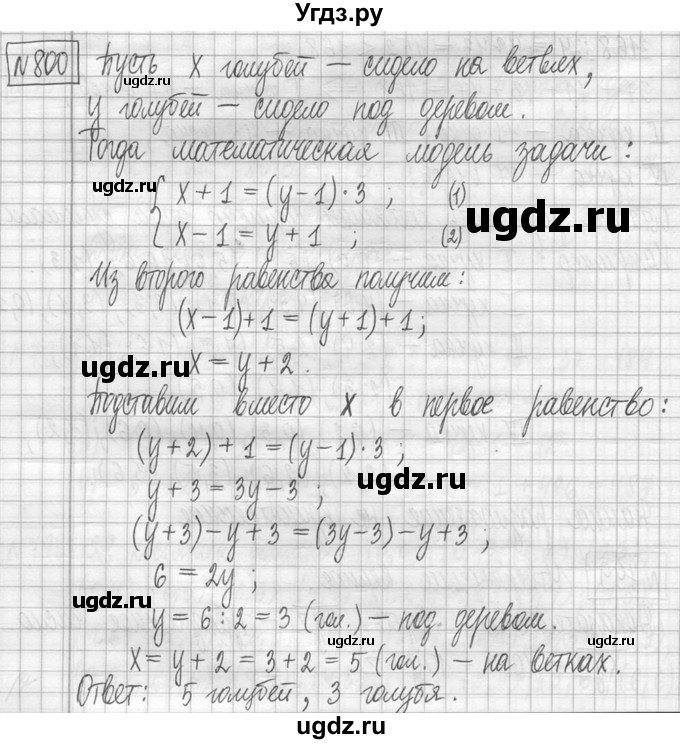 Угдз.ру
N800 Пусть x голубей – сидело на ветвях,
y голубей – сидело под деревом.
Тогда математическая модель задачи:
ugdz.ru
{ x + 1 = (y – 1) · 3 ; (1)
ugdz.ru
x – 1 = y + 1 ; (2)
ugdz.ru
Из второго равенства получим:
(x – 1) + 1 = (y + 1) + 1 ;
ugdz.ru
x = y + 2 .
Подставим вместо x в первое равенство:
(y + 2) + 1 = (y – 1) · 3 ;
ugdz.ru
y + 3 = 3y – 3 ;
(y + 3) – y + 3 = (3y – 3) – y + 3 ;
6 = 2y ;
ugdz.ru
y = 6 : 2 = 3 (гол.) – под деревом.
ugdz.ru
ugdz.ru
x = y + 2 = 3 + 2 = 5 (гол.) – на ветках.
Ответ: 5 голубей, 3 голубя.
ugdz.ru